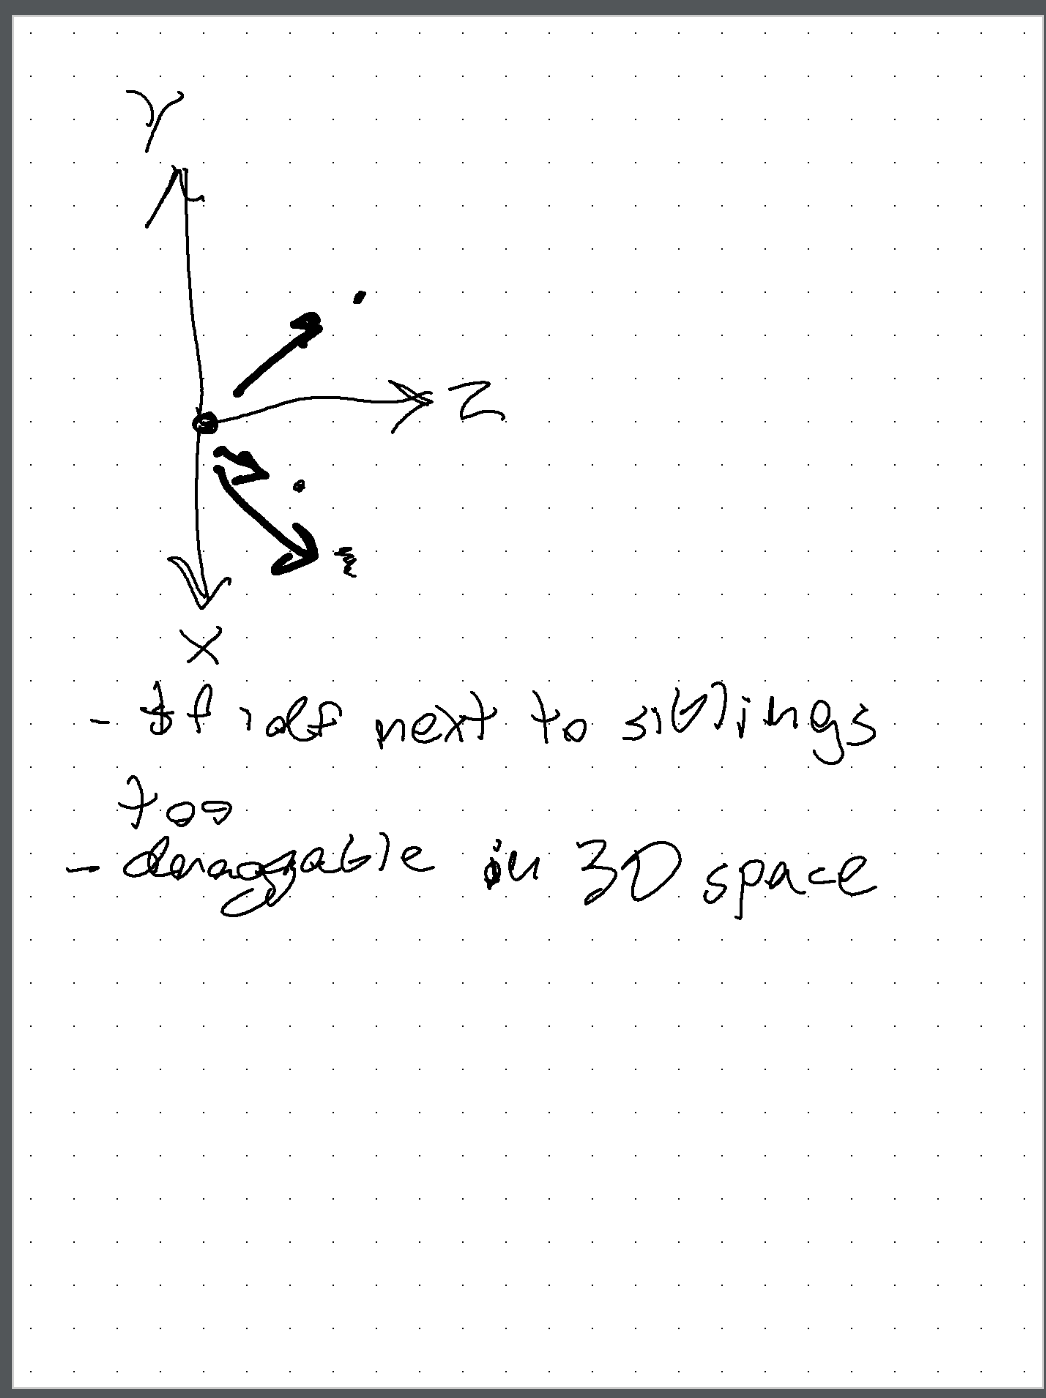 Y
Z
X
- tf idf next to siblings
too
- draggable in 3D space